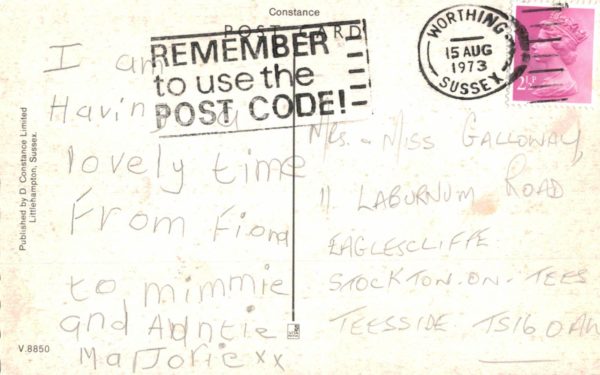 Constance
POST CARD
REMEMBER
to use the
POST CODE!
WORTHING
15 AUG
1973
SUSSEX
2½P
I am
Havin
lovely time
From Fiona
to mimmie
and Auntie
Marjorie xx
Mrs. & Miss GALLOWAY
11 LABURNUM ROAD
EAGLESCLIFFE
STOCKTON-ON-TEES
TEESSIDE TS16 0
Published by D. Constance Limited
Littlehampton, Sussex.
V.8850